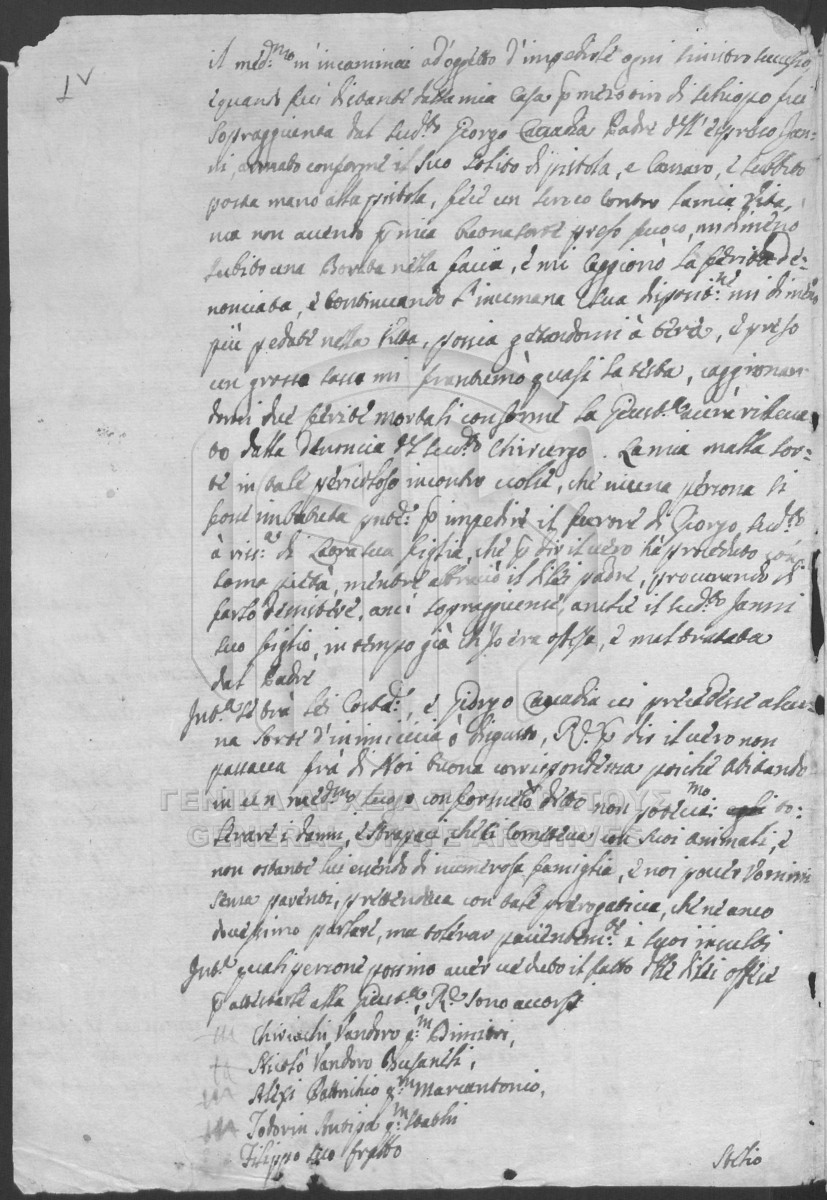 1V
il med:mo m'incaminai ad'oggetto d'impedirle ogni sinistro successo,
e quando fui distante dalla mia Casa p mezo tiro di schioppo fui
sopraggiunta dal sud:to Giorgo Cavadia Padre dell'espresso Jan-
ni, armato conforme il suo solito di pistola, e Canzaro, e subbito
posta mano alla pistola, fece un scroco contro la mia Vita,
ma non avendo p mia buona sorte preso fuoco, mi diméno
subito una Botta nella faccia, e mi caggionò la ferita De-
nonciata, e continuando l'inumana sua disposit:ne mi diméno
più pedate nella Vita, poscia gettandomi à terra, e preso
un grosso sasso mi frantumò quasi la testa, caggionan
domi due ferite mortali conforme la Giust:a averà rileva
to dalla denoncia del sud:to Chirurgo. La mia mala sor-
te in tale pericoloso incontro volse, che niuna persona si
fosse imbatuta p impedire il furore di Giorgo sud:to
à riss:a di sua figlia, che p dir il vero hà proceduto con
soma pietà, mentre abbraciò il di lei padre, procurando di
farlo desistere, anci sopraggiunse, anche il sud:to Janni
suo figlio, in tempo già ch'io era offesa, e maltratata
dal Padre
Int:a se trà lei Cost:a e Giorgo Cavadia vi precedesse alcu-
na sorte d'inimicicia ò disgusto, R:e p dir il vero non
passava frà di Noi buona corrispondenza poiche abitando
in un med:mo luogo conforme hò detto non potevamo to-
lerare i danni, e strapaci, che ci cometeva con suoi animali, e
non ostante lui essendo di numerosa famiglia, e noi poveri Vomini
senza parenti, pretendeva con tale prerogativa, che ne anco
dovessimo parlare, ma tolerar pacientem:te i suoi insulti
Int:a quali persone possino aver veduto il fatto delle di lei offese
p atestarle alla Giust:a, R:e Sono accorsi
Chiriachi Vandoro q:m Dimitri,
Nicolò Vandoro
Alessi q:m Marcantonio,
Todorin q:m Stathi
Filippo suo fratello
Stelio
ΓΕΝΙΚΑ ΑΡΧΕΙΑ ΤΟΥ ΚΡΑΤΟΥΣ
GENERAL STATE ARCHIVES